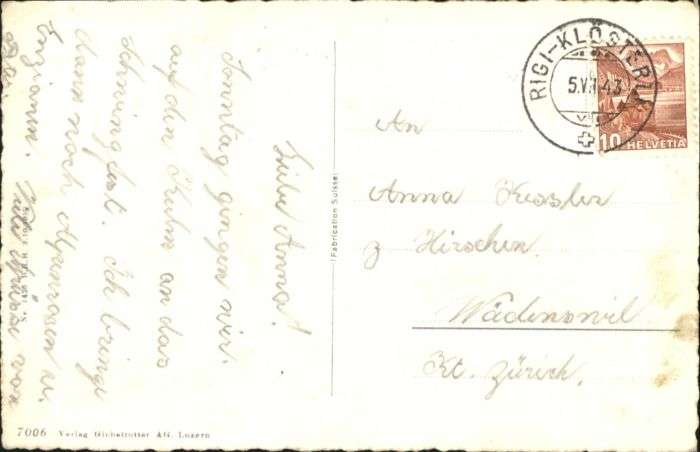 Liebe Anna!
Sonntag gingen wir
auf den Kulm an das
Schwingfest. Ich bringe
dann noch Alpenrosen u.
Enzianen. Viele Grüsse von
RIGI-KLÖSTERLI
5.VII.43
10 HELVETIA
An
Anna Kessler
z Hirschen.
Wädenswil
Kt. Zürich.
Fabrication Suisse
7006 Verlag Globetrotter AG. Luzern